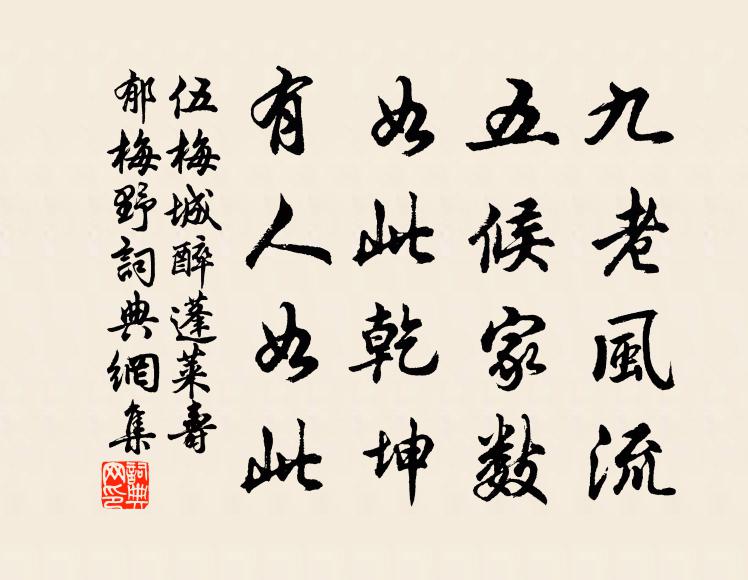 九老風流
五候家數
如此乾坤
有人如此
伍梅城醉蓬萊壽
郁梅野詞典網集
詞典
网印